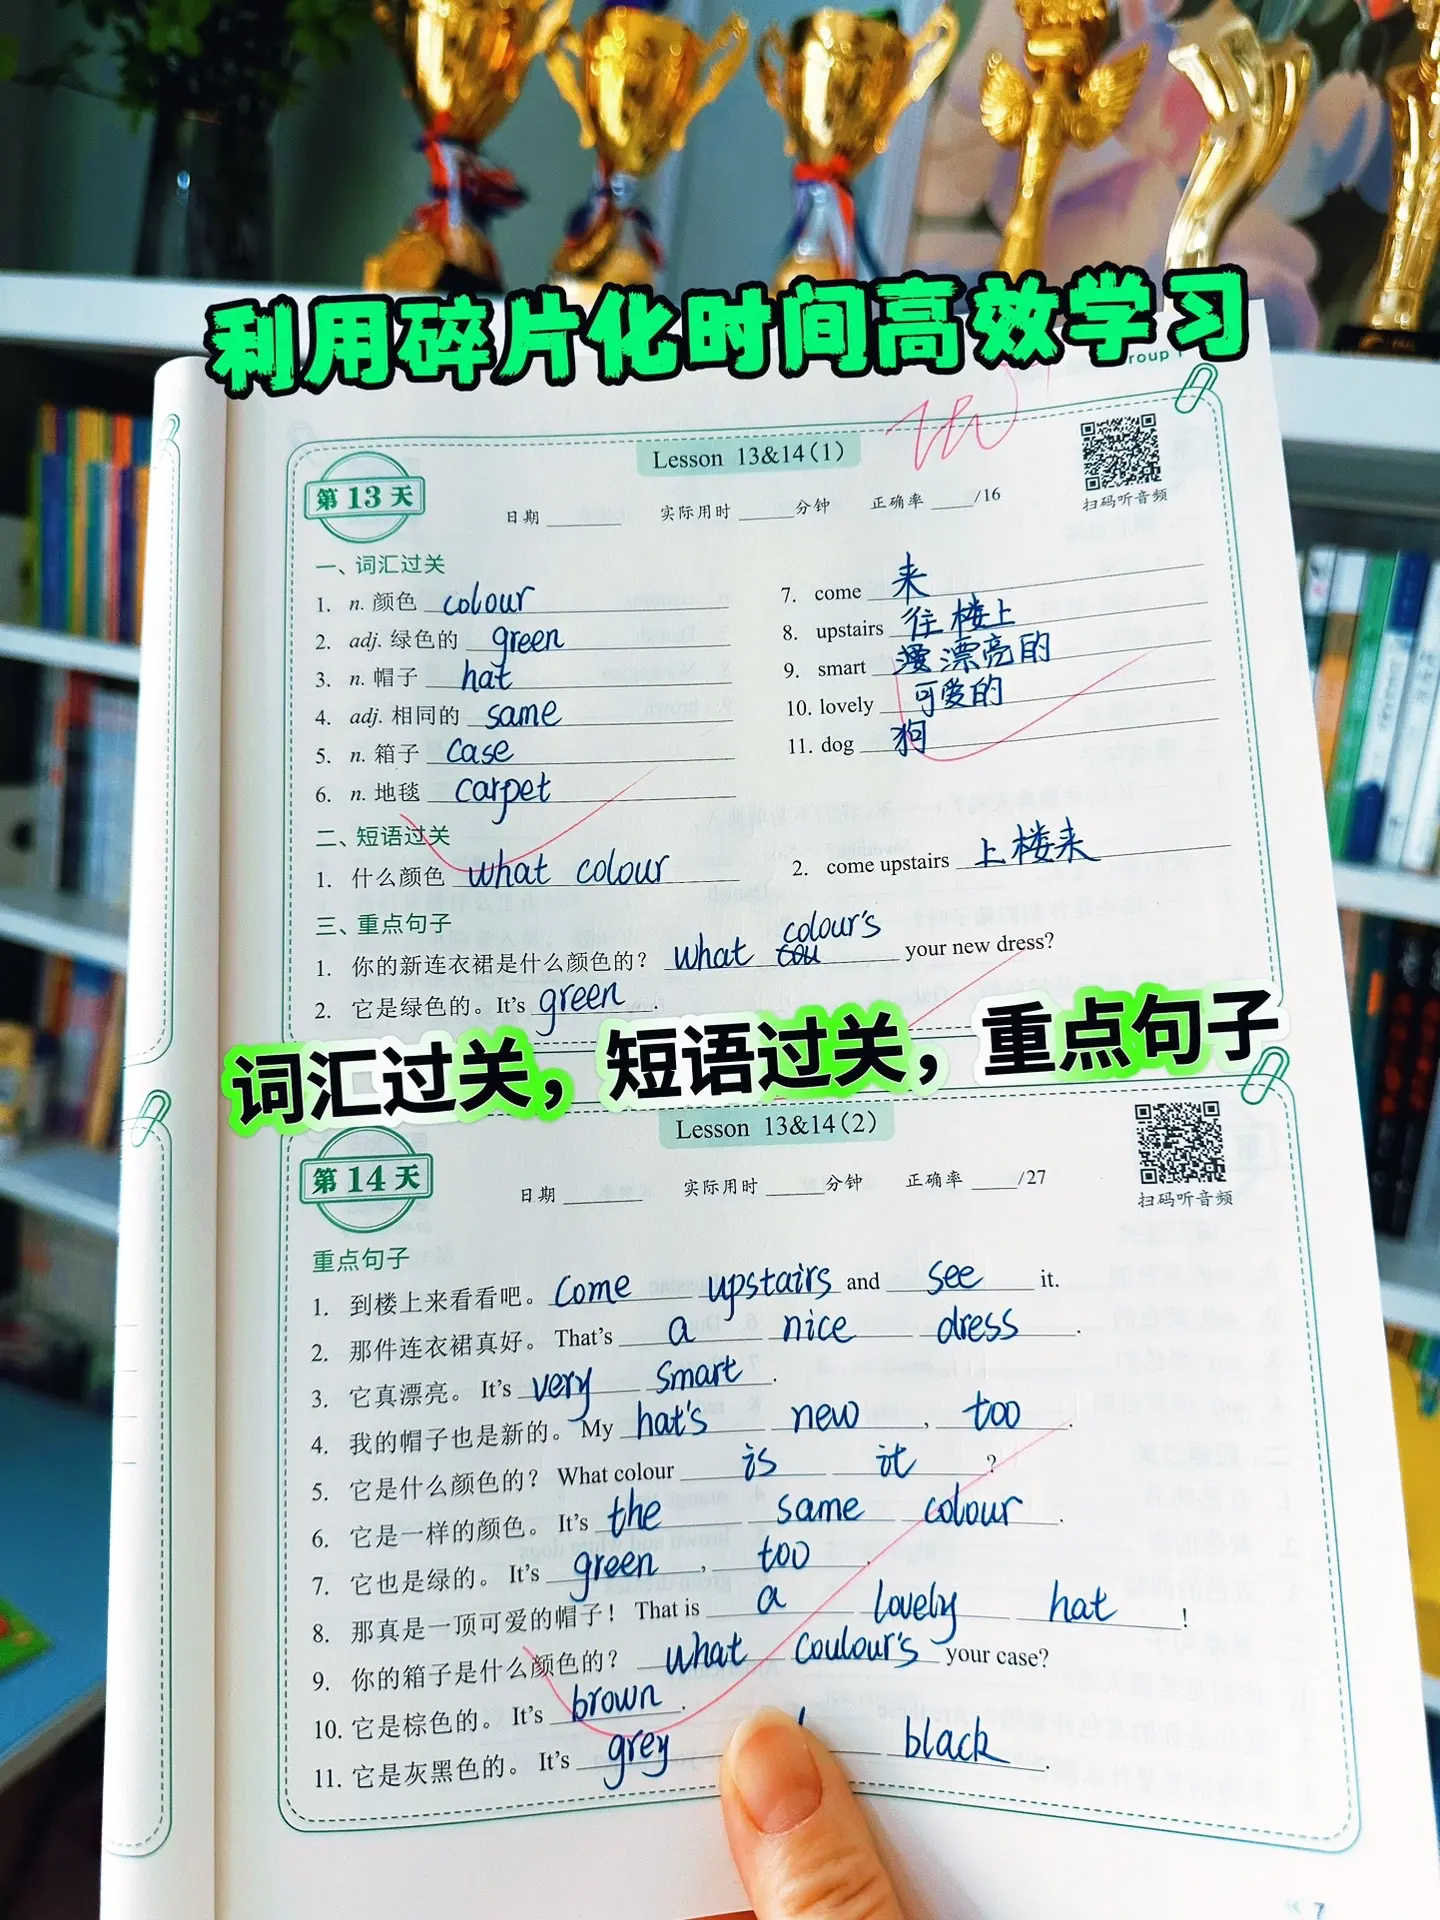 利用碎片化时间高效学习
Lesson 13&14(1)
第13天
日期 ______ 实际用时 ______分钟 正确率 ______/16
扫码听音频
一、词汇过关
1. n. 颜色 colour
2. adj. 绿色的 green
3. n. 帽子 hat
4. adj. 相同的 same
5. n. 箱子 case
6. n. 地毯 carpet
7. come 来
8. upstairs 往楼上
9. smart 漂亮的
10. lovely 可爱的
11. dog 狗
二、短语过关
1. 什么颜色 what colour
2. come upstairs 上楼来
三、重点句子
1. 你的新连衣裙是什么颜色的？ what colour's your new dress?
2. 它是绿色的。It's green.
词汇过关，短语过关，重点句子
Lesson 13&14(2)
第14天
日期 ______ 实际用时 ______分钟 正确率 ______/27
扫码听音频
重点句子
1. 到楼上来看看吧。 come upstairs and see it.
2. 那件连衣裙真好。That's a nice dress.
3. 它真漂亮。It's very smart.
4. 我的帽子也是新的。My hat's new, too.
5. 它是什么颜色的？ What colour is it?
6. 它是一样的颜色。It's the same colour.
7. 它也是绿的。It's green, too.
8. 那真是一顶可爱的帽子！That is a lovely hat!
9. 你的箱子是什么颜色的？ what coulour's your case?
10. 它是棕色的。It's brown.
11. 它是灰黑色的。It's grey black.
7